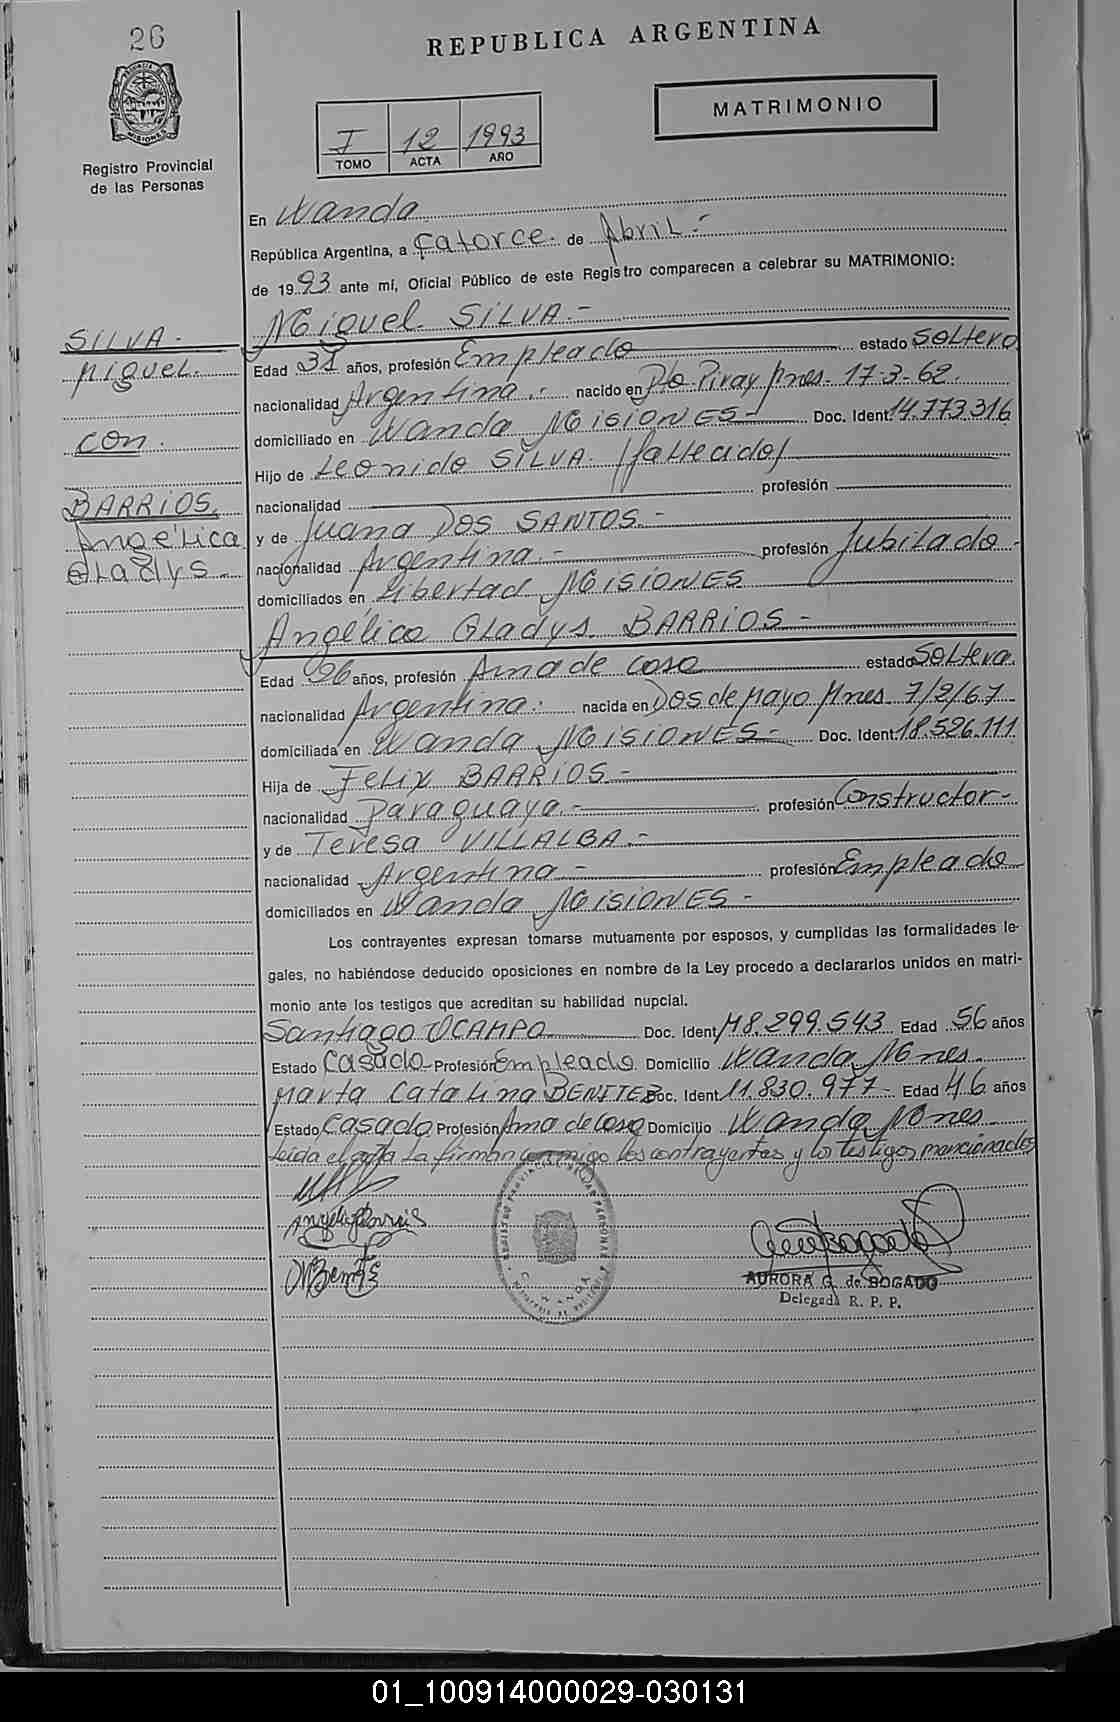 26
REPUBLICA ARGENTINA
PROVINCIA DE MISIONES
Registro Provincial
de las Personas
MATRIMONIO
I 12 1993
TOMO ACTA AÑO
En Wanda.
República Argentina, a Catorce. de Abril.-
de 1993 ante mí, Oficial Público de este Registro comparecen a celebrar su MATRIMONIO:
SILVA.
Miguel.
con.
BARRIOS.
Angélica
Gladys.
Miguel SILVA.-
Edad 31 años, profesión Empleado estado Soltero
nacionalidad Argentina.- nacido en Pto. Piray Mnes. 17-3-62.
domiciliado en Wanda MISIONES- Doc. Ident. 14.773.316
Hijo de Leonido SILVA. /fallecido/
nacionalidad profesión
y de Juana DOS SANTOS.-
nacionalidad Argentina.- profesión Jubilado-
domiciliados en Libertad MISIONES
Angélica Gladys. BARRIOS-
Edad 26 años, profesión Ama de casa estado Soltera.
nacionalidad Argentina. nacida en Dos de Mayo Mnes. 7/2/67
domiciliada en Wanda MISIONES- Doc. Ident. 18.526.111
Hija de Felix BARRIOS-
nacionalidad Paraguaya.- profesión Constructor-
y de Teresa VILLALBA.-
nacionalidad Argentina- profesión Empleada
domiciliados en Wanda MISIONES-
Los contrayentes expresan tomarse mutuamente por esposos, y cumplidas las formalidades le-
gales, no habiéndose deducido oposiciones en nombre de la Ley procedo a declararlos unidos en matri-
monio ante los testigos que acreditan su habilidad nupcial.
Santiago OCAMPO Doc. Ident. M8.299.543 Edad 56 años
Estado Casado Profesión Empleado. Domicilio Wanda Mnes.
Marta Catalina BENITEZ Doc. Ident. 11.830.977 Edad 46 años
Estado Casada Profesión Ama de casa Domicilio Wanda Mnes
Leida el acta la firman conmigo los contrayentes y los testigos mencionados
AURORA G. de BOGADO
Delegada R. P. P.
01_100914000029-030131